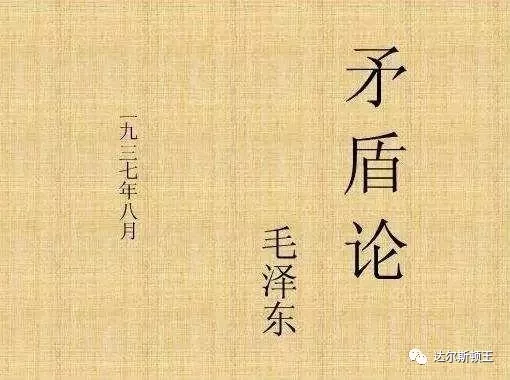 矛盾论
毛泽东
一九三七年八月
达尔斯顿王